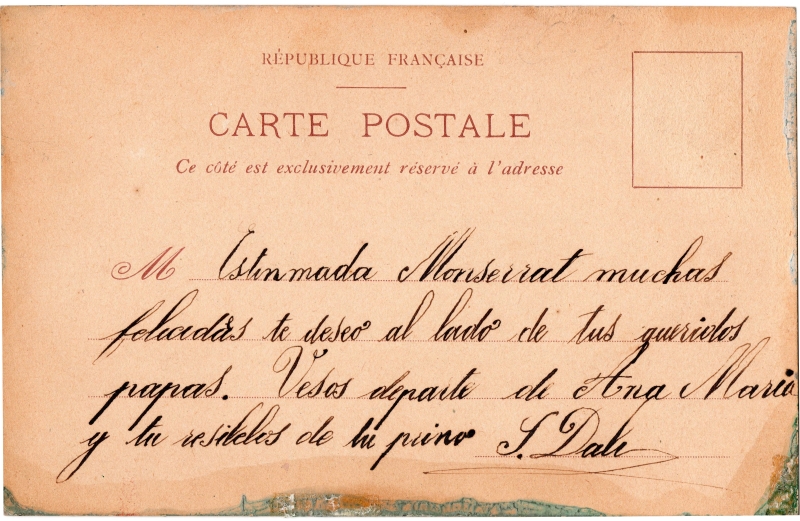 RÉPUBLIQUE FRANÇAISE
CARTE POSTALE
Ce côté est exclusivement réservé à l'adresse
M Estinmada Monserrat muchas
te deseo al lado de tus queridos
papas. Vesos departe de Ana Maria
y tu de tu primo S. Dali